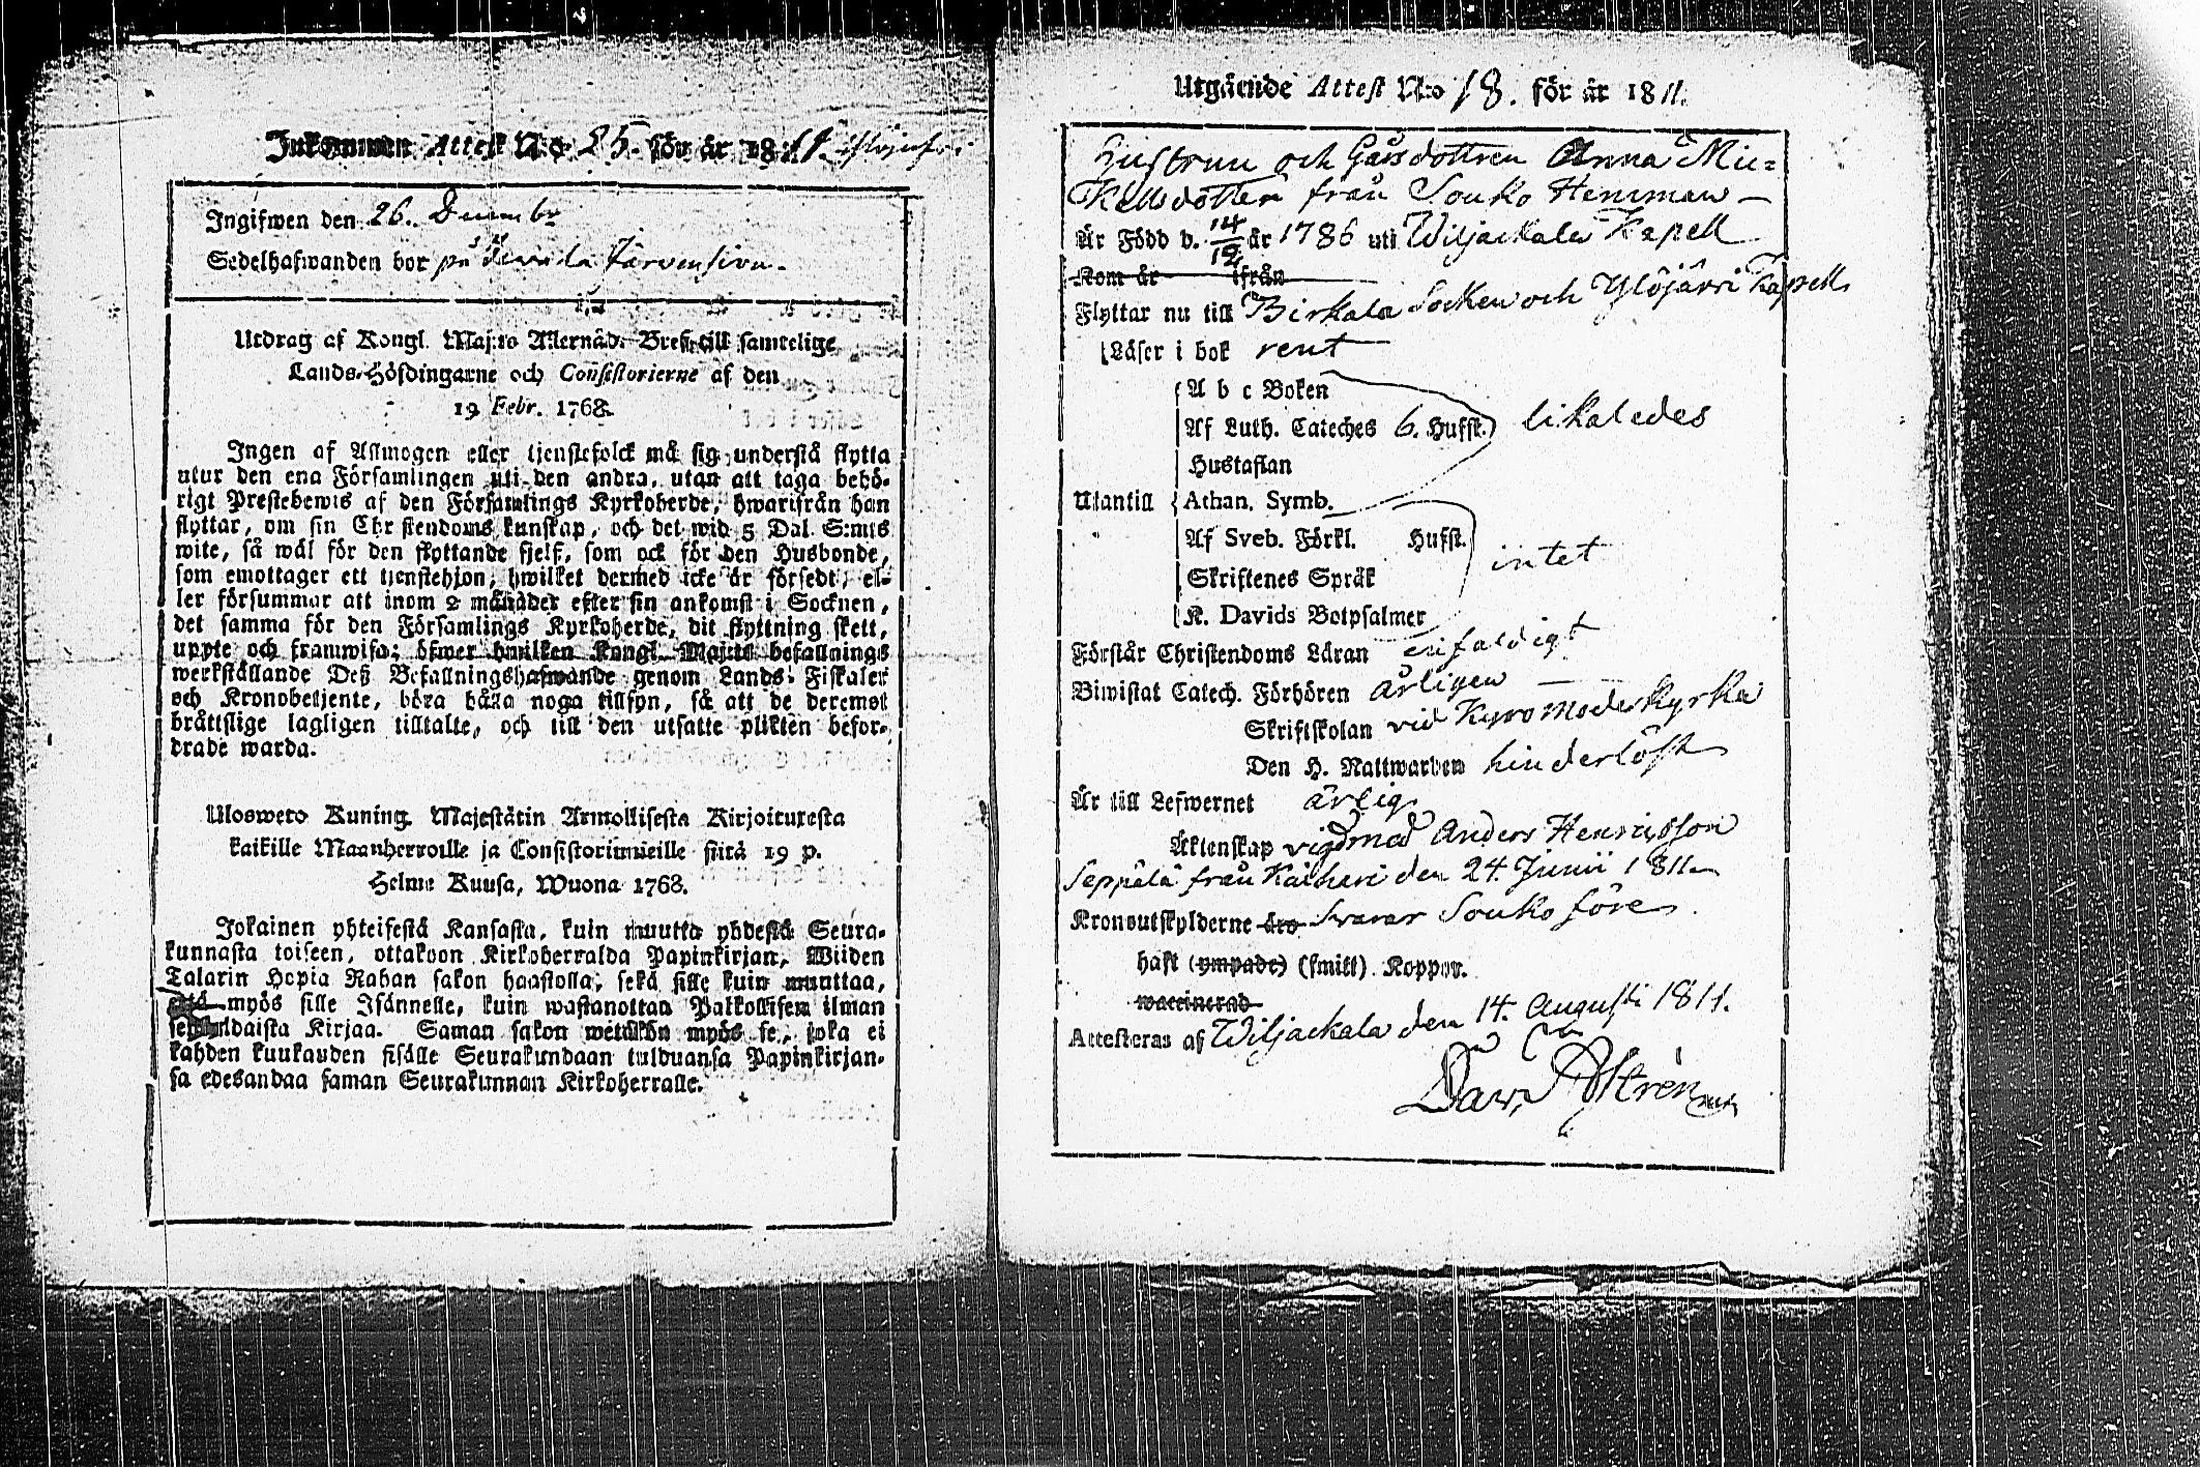 Inkommen Attest N:o 25. för år 1811.
Ingifwen den 26. Decembr
Sedelhafwanden bor på
Utdrag af Kongl. Maj:ts Allernåd. Bref till samtelige
Lands-Höfdingarne och Consistorierne af den
19 Febr. 1768.
Ingen af Allmogen eller tjenstefolck må sig understå flytta
utur den ena Församlingen uti den andra, utan att taga behö-
rigt Prestebewis af den Församlings Kyrkoherde, hwarifrån han
flyttar, om sin Christendoms kunskap, och det wid 5 Dal. S:mts
wite, så wäl för den flyttande sjelf, som ock för den Husbonde,
som emottager ett tjenstehjon, hwilket dermed icke är försedt, el-
ler försummar att inom 2 månader efter sin ankomst i Socknen,
det samma för den Församlings Kyrkoherde, dit flyttning skett,
uppte och framwisa; öfwer hwilken Kongl. Maj:ts befallnings
werkställande Deß Befallningshafwande genom Lands-Fiskaler
och Kronobetjente, böra hålla noga tillsyn, så att de deremot
bråttslige lagligen tilltalte, och till den utsatte plikten befor-
drade warda.
Ulosweto Kuning. Majestätin Armollisesta Kirjoituxesta
kaikille Maanherroille ja Consistoriumeille siitä 19 p.
Helme Kuusa, Wuona 1768.
Jokainen yhteisestä Kansasta, kuin muutta yhdestä Seura-
kunnasta toiseen, ottakoon Kirkoherralda Papinkirjan, Wiiden
Talarin Hopia Rahan sakon haastolla, sekä sille kuin muuttaa,
että myös sille Isännelle, kuin wastanottaa Palkollisen ilman
Kirjaa. Saman sakon wetäkön myös se, joka ei
kahden kuukauden sisälle Seurakundaan tulduansa Papinkirjan-
sa edesandaa saman Seurakunnan Kirkoherralle.
Utgående Attest N:o 18. för år 1811.
Hustrun och Gårsdottren Anna Mic-
kelsdotter från Souko Hemman
Är Född d. 14/12 år 1786 uti Wiljackala Kapell
Kom år ifrån
Flyttar nu till Birkala Socken och Ylöjärvi Kapell
Läser i bok rent
A b c Boken
Af Luth. Cateches 6. Hufst. likaledes
Hustaflan
Utantill Athan. Symb.
Af Sveb. Förkl. Hufst. intet
Skriftenes Språk
K. Davids Botpsalmer
Förstår Christendoms Läran enfaldigt
Biwistat Catech. Förhören årligen
Skriftskolan vid Kyro Moderkyrka
Den H. Nattwarden hinderlöst
Är till Lefwernet ärlig
Äktenskap vigd med Anders Henricsson
Seppälä från Kaihari den 24. Junii 1811.
Kronoutskylderne äro svarar Souko före
haft (ympade) (smitt). Koppor.
waccinerad
Attesteras af Wiljackala den 14. Augusti 1811.